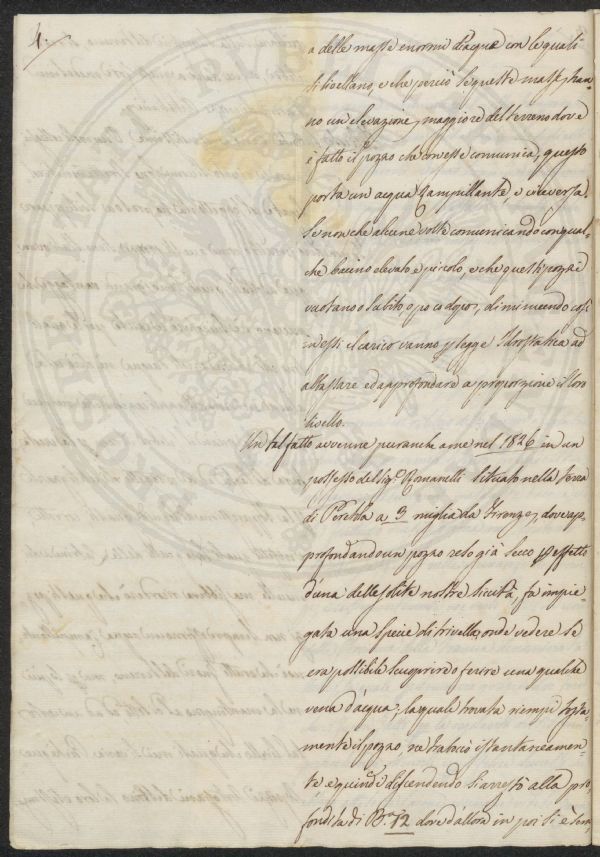 4.
a delle masse enormi d'acqua con le quali
si livellano, e che perciò se queste masse han-
no un elevazione maggiore del terreno dov'e
è fatto il pozzo che con esse comunica, questo
porta un acqua Zampillante, e viceversa,
se non che alcune volte comunicando con qual-
che bacino elevato e piccolo, e che questi pozzi
vuotano o subito, o poco dopo, diminuendo così
in essi il carico vanno p legge Idrostatica ad
abassare ed approfondare a proporzione il loro
livello.
Un tal fatto avvenne pur anche a me nel 1826 in un
possesso del Sig.r Romanelli situato nella terra
di Peretola a 3 miglia da Firenze, dove ap-
profondando un pozzo reso già secco p effetto
d'una delle solite nostre siccità, fu impie-
gata una specie di trivella, onde vedere se
era possibile scuoprire o ferire una qualche
vena d'acqua, la quale trovata riempì tosta-
mente il pozzo, ne traboccò istantaneamen-
te e quindi discendendo si arrestò alla pro-
fondità di B. 12 dove d'allora in poi si è sem